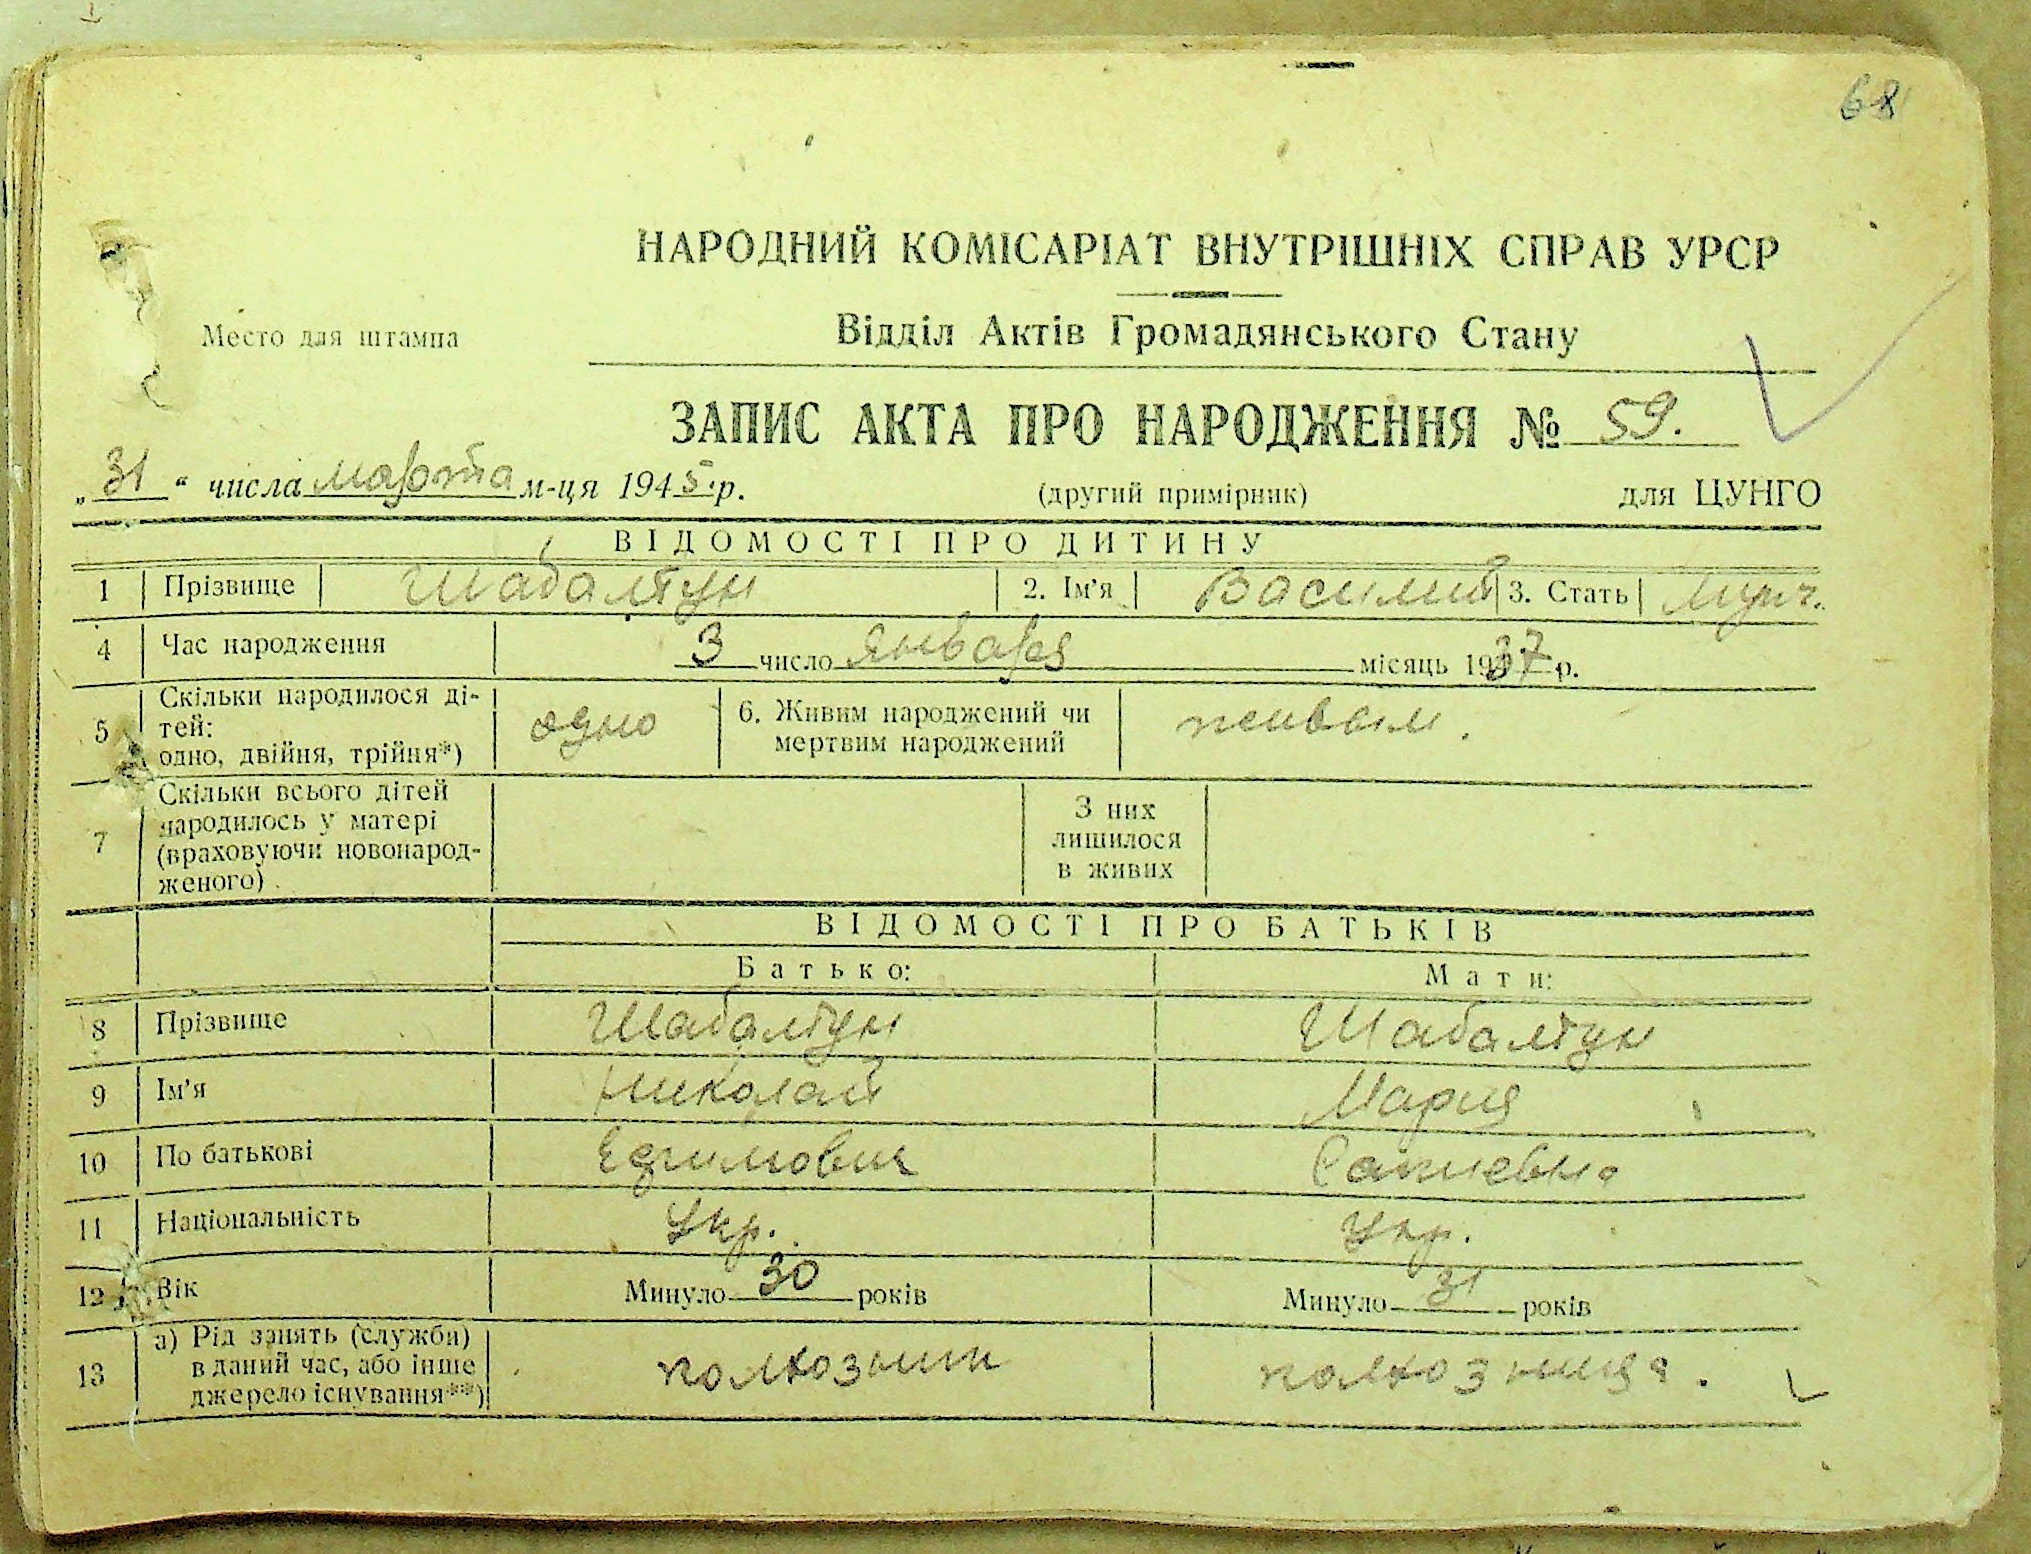 68
НАРОДНИЙ КОМІСАРІАТ ВНУТРІШНІХ СПРАВ УРСР
Место для штампа
Відділ Актів Громадянського Стану
ЗАПИС АКТА ПРО НАРОДЖЕННЯ № 59.
„31“ числа марта м-ця 1945.р. (другий примірник) для ЦУНГО
ВІДОМОСТІ ПРО ДИТИНУ
1 Прізвище Шабалтун 2. Ім'я Василий 3. Стать Муж.
4 Час народження 3 число января місяць 1937 р.
5 Скільки народилося ді-
тей:
одно, двійня, трійня*) одно 6. Живим народжений чи
мертвим народжений живым.
7 Скільки всього дітей
народилось у матері
(враховуючи новонарод-
женого)
З них
лишилося
в живих
ВІДОМОСТІ ПРО БАТЬКІВ
Батько: Мати:
8 Прізвище Шабалтун Шабалтун
9 Ім'я Николай Мария
10 По батькові Ефимович
11 Національність Укр. Укр.
12 Вік Минуло 30 років Минуло 31 років
13 а) Рід занять (служби)
в даний час, або інше
джерело існування**) колхозник колхозница.